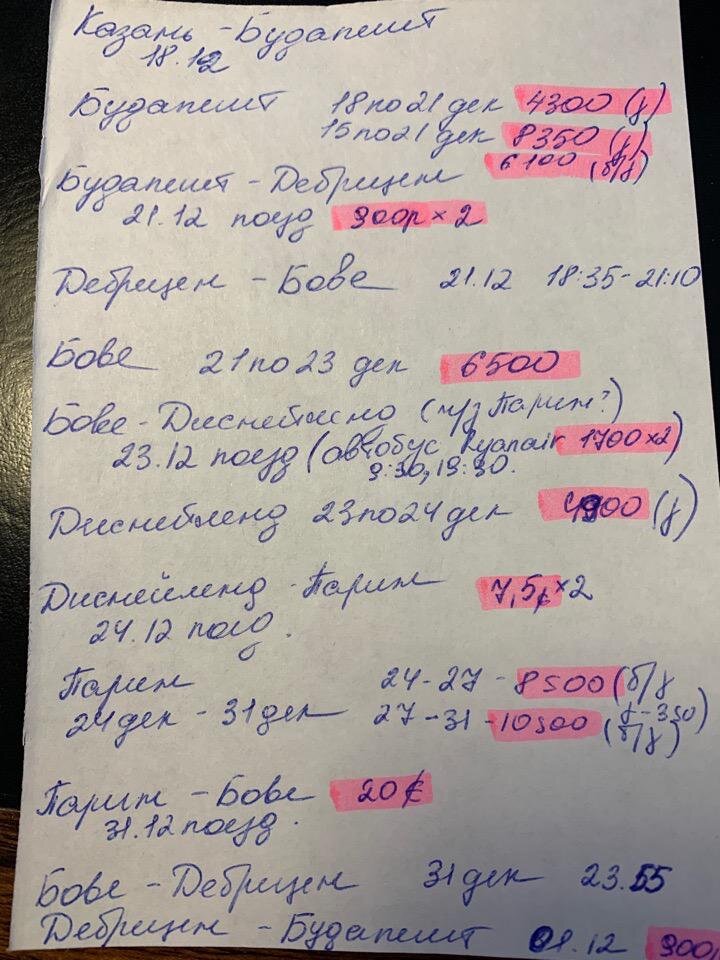 Казань - Будапешт
18.12
Будапешт 18 по 21 дек 4300 (з)
15 по 21 дек 8350 (з)
6100 (б/з)
Будапешт - Дебрецен
21.12 поезд 300р × 2
Дебрецен - Бове 21.12 18:35-21:10
Бове 21 по 23 дек 6500
Бове - Диснейленд (ч/з Париж?)
23.12 поезд (автобус Ryanair 1700×2)
9:30, 19:30.
Диснейленд 23 по 24 дек 4900 (з)
Диснейленд - Париж 7,5€ ×2
24.12 поезд.
Париж 24 - 27 - 8500 (б/з
24 дек - 31 дек 27 - 31 - 10500 (з - 350)
(б/з)
Париж - Бове 20€
31.12 поезд.
Бове - Дебрецен 31 дек 23.55
Дебрецен - Будапешт 01.12 300